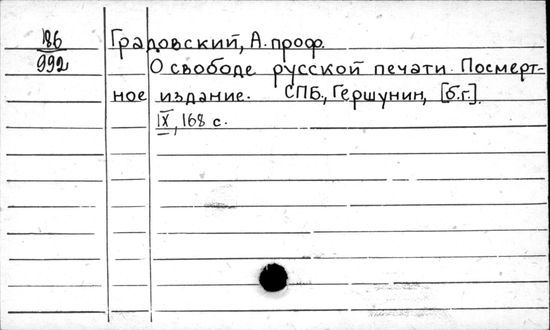 186
992
Градовский, А. проф.
О свободе русской печати. Посмерт-
ное издание. СПБ., Гершунин, [б.г.].
IX, 168 с.